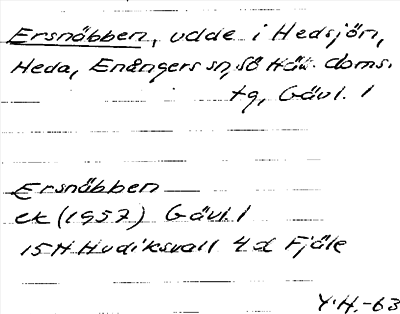 Ersnäbben, udde i Hedsjön,
Heda, Enångers sn, sö Häls. doms.
tg, Gävl. l
Ersnäbben
ek (1957) Gävl. l
15H Hudiksvall 4d Fjäle
Y.H.-63